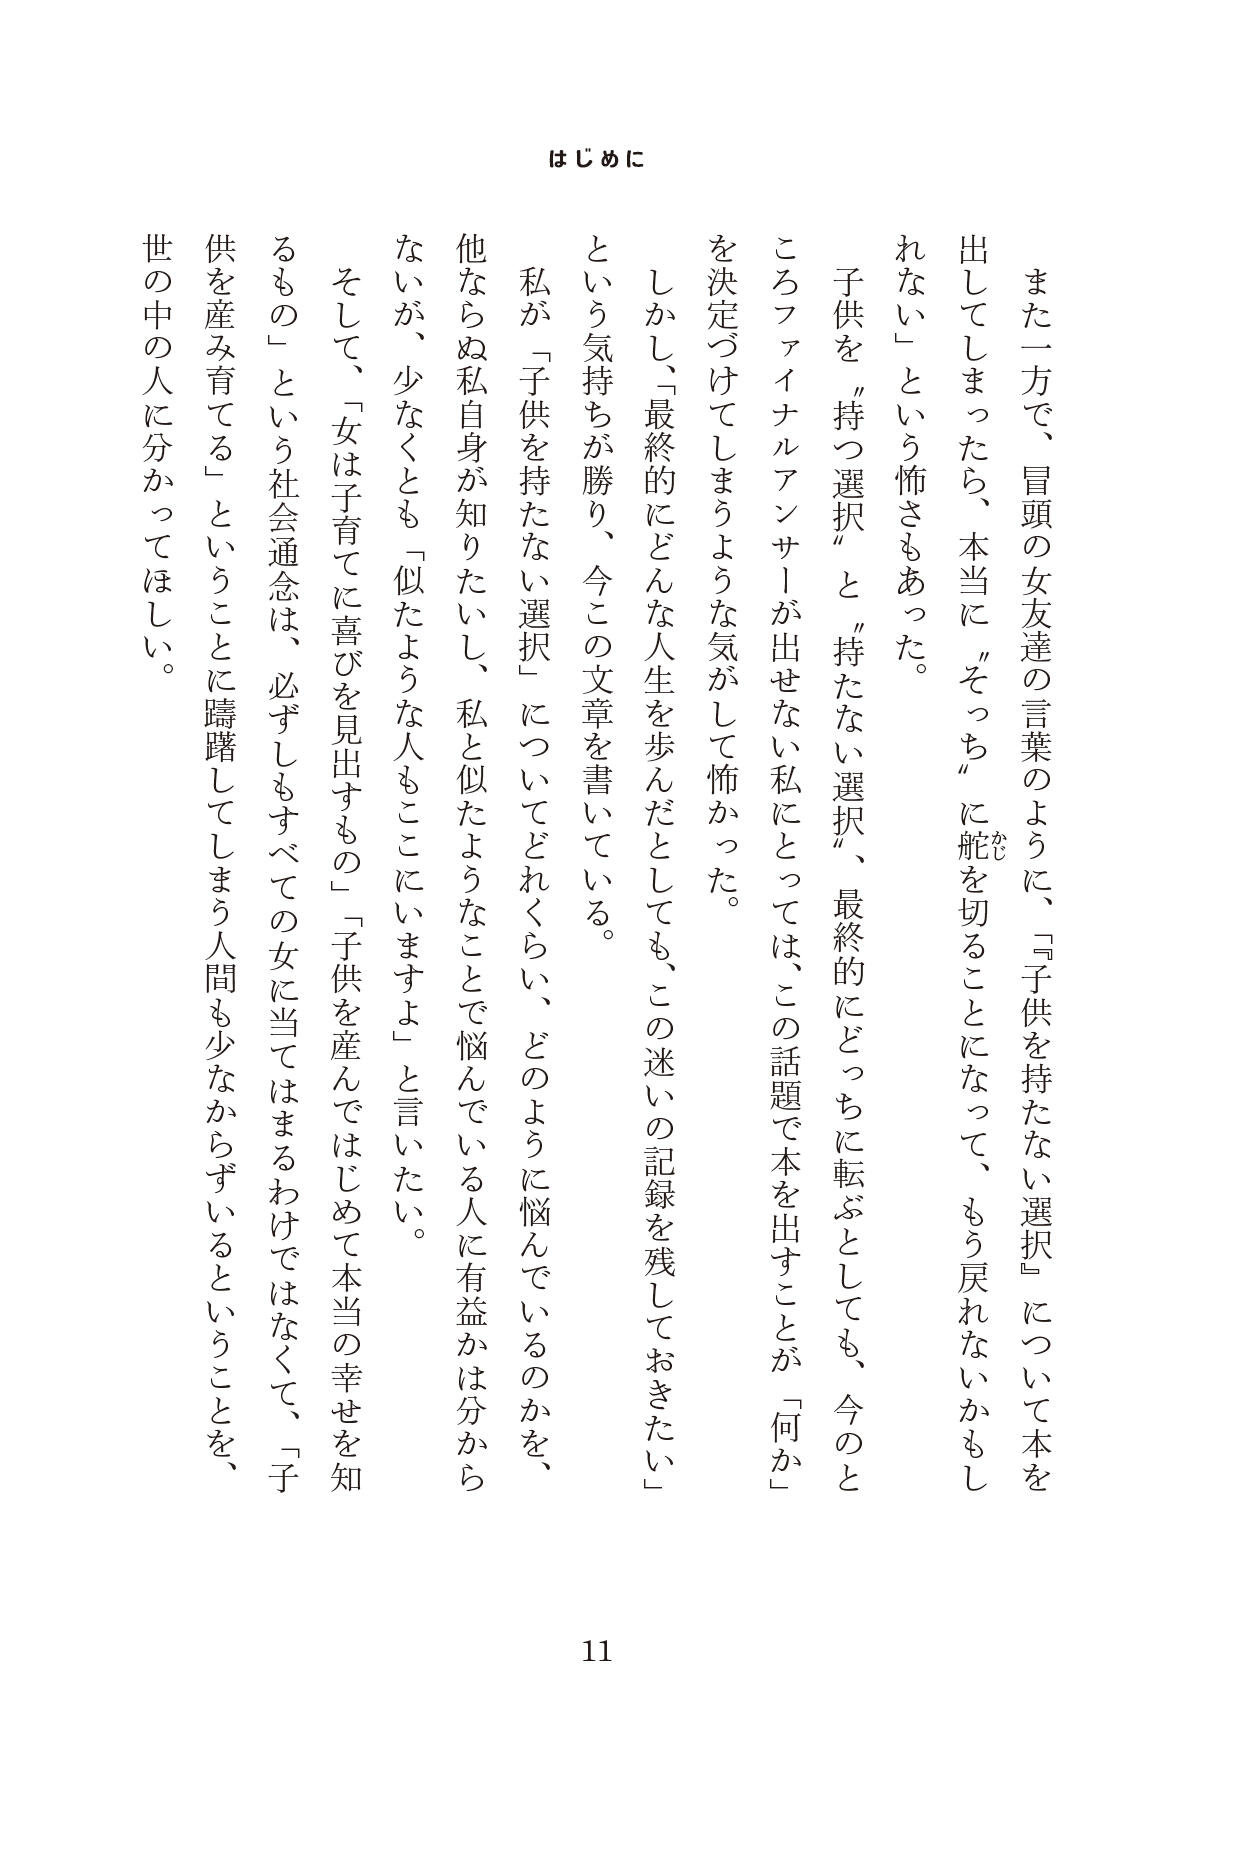 はじめに
　また一方で、冒頭の女友達の言葉のように、「『子供を持たない選択』について本を
出してしまったら、本当に〝そっち〟に舵を切ることになって、もう戻れないかもし
かじ
れない」という怖さもあった。
　子供を〝持つ選択〟と〝持たない選択〟、最終的にどっちに転ぶとしても、今のと
ころファイナルアンサーが出せない私にとっては、この話題で本を出すことが「何か」
を決定づけてしまうような気がして怖かった。
　しかし、「最終的にどんな人生を歩んだとしても、この迷いの記録を残しておきたい」
という気持ちが勝り、今この文章を書いている。
　私が「子供を持たない選択」についてどれくらい、どのように悩んでいるのかを、
他ならぬ私自身が知りたいし、私と似たようなことで悩んでいる人に有益かは分から
ないが、少なくとも「似たような人もここにいますよ」と言いたい。
　そして、「女は子育てに喜びを見出すもの」「子供を産んではじめて本当の幸せを知
るもの」という社会通念は、必ずしもすべての女に当てはまるわけではなくて、「子
供を産み育てる」ということに躊躇してしまう人間も少なからずいるということを、
世の中の人に分かってほしい。
11